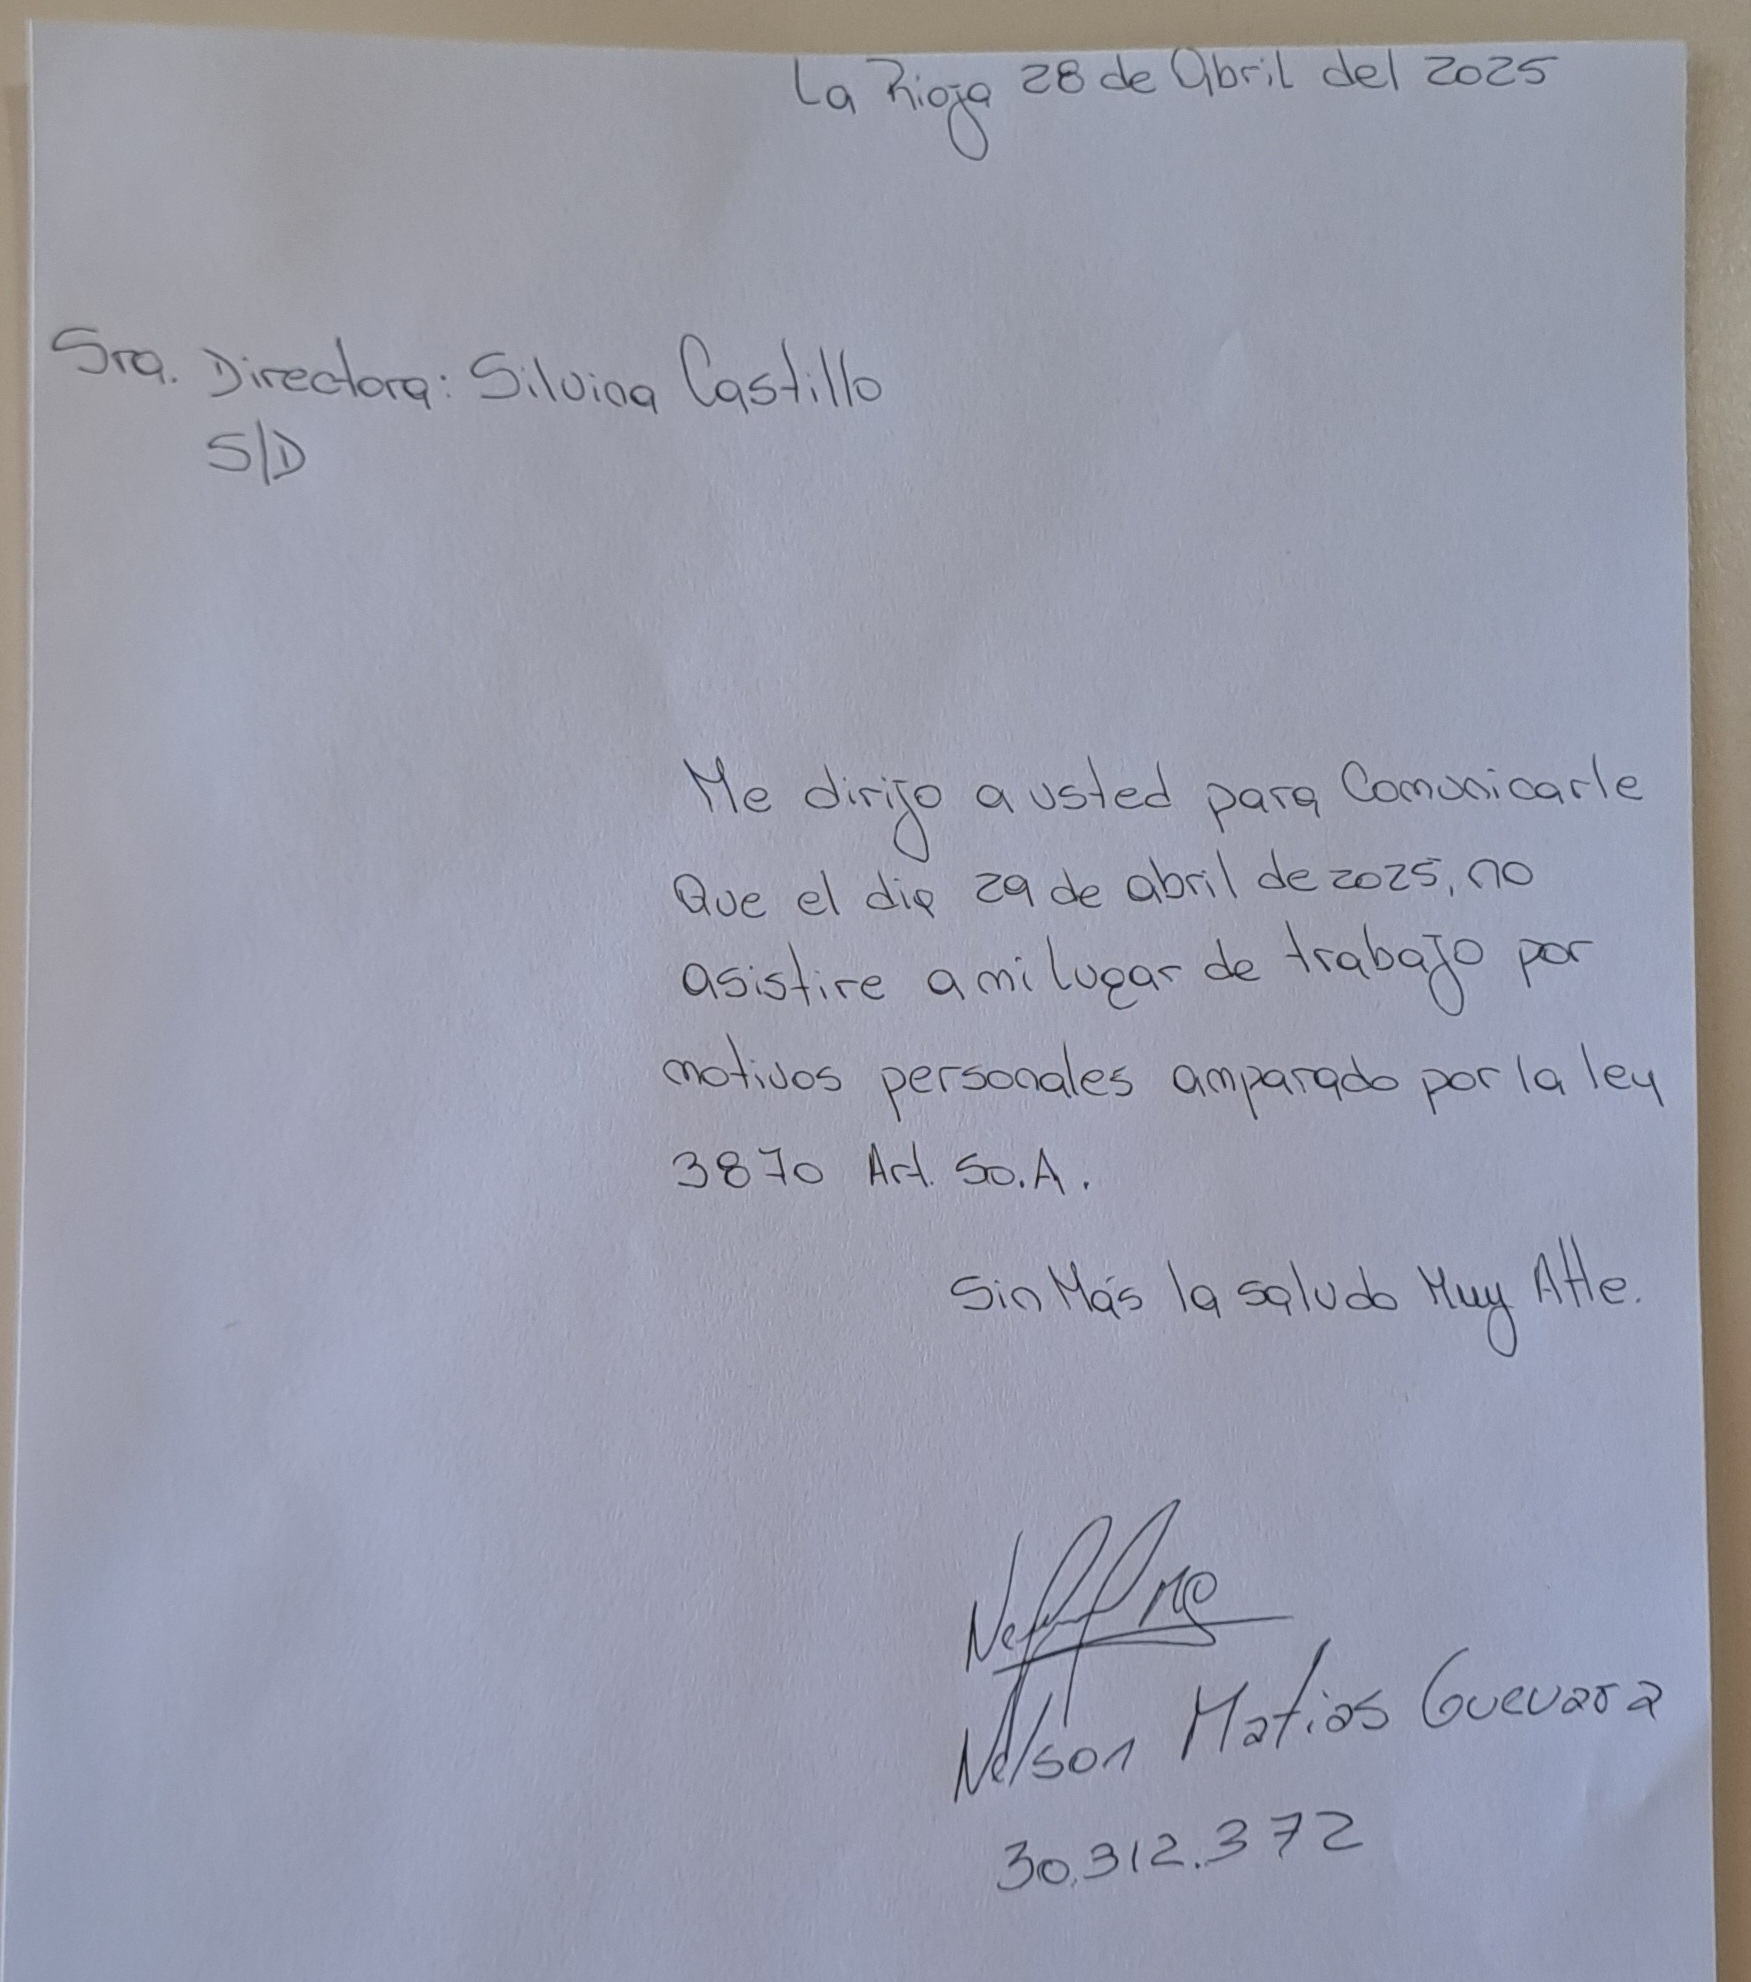 La Rioja 28 de Abril del 2025
Sra. Directora: Silvina Castillo
S/D
Me dirijo a usted para Comunicarle
Que el dia 29 de abril de 2025, no
asistire a mi lugar de trabajo por
motivos personales amparado por la ley
3870 Art. 50.A.
Sin Más la saludo Muy Atte.
Nelson Matias Guevara
30.312.372